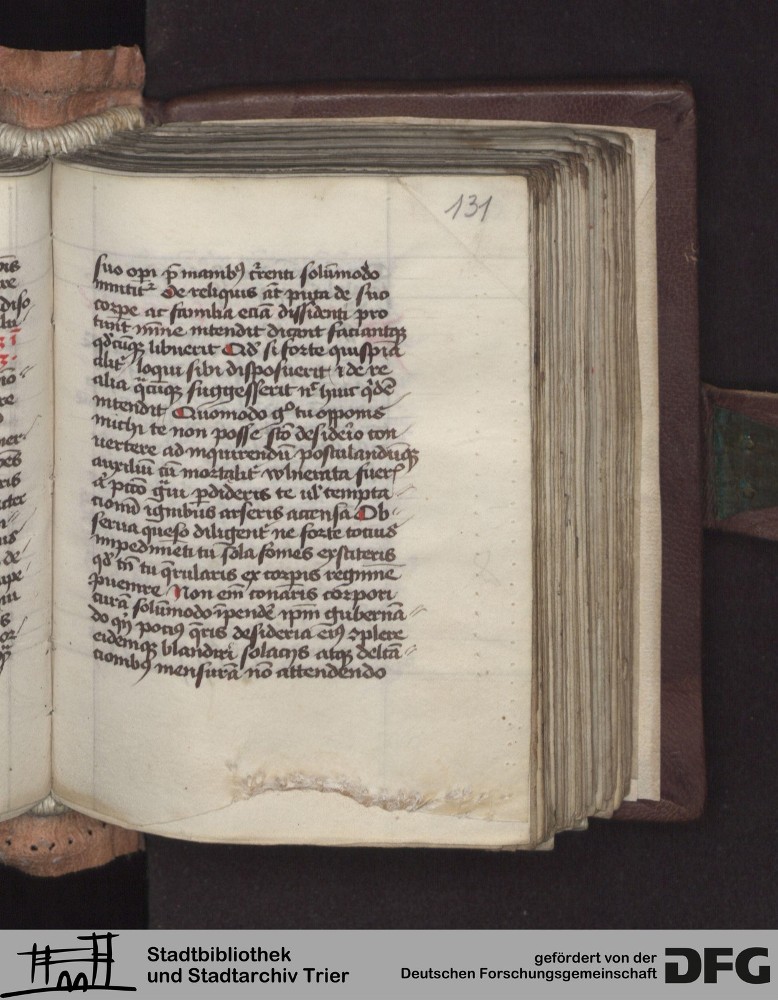 131
suo opi p̄ manibꝫ t̄renti solūmodo
innitit᷑ De reliquis at̄ puta de suo
corpe ac familia eciā dissidenti pro
intendit dicant faciantqꝫ
qd̄cūqꝫ libuerit Qd̓ si forte quispiā
alit̓ loqui sibi disposuerit ⁊ de re
alia q̄cūqꝫ suggesserit nͨ huic q̓dē
intendit Quomodo gͦ tu opponis
michi te non posse sc̄o desiderio con
uertere ad inquirendū postulandūqꝫ
auxiliū cū mortalit̓ wlnerata fuer᷑
a pctō ḡui p̄dideris te ul̓ tempta
cionū ignibus arseris accensa Ob
serua queso diligent̓ ne forte totius
impedimēti tu sola fomes exstiteris
qd̓ tn̄ tu q̄rularis ex corpis regimīe
ꝓuenire Non em̄ conaris corpori
curā solūmodo īpendē ip̄m gubernā
do qn̄ pociꝫ q̄ris desideria eiꝫ ꝯplere
eidemqꝫ blandiri solacijs atqꝫ delc̄a
cionibꝫ mensurā nō attendendo
Stadtbibliothek
und Stadtarchiv Trier
gefördert von der
Deutschen Forschungsgemeinschaft
DFG